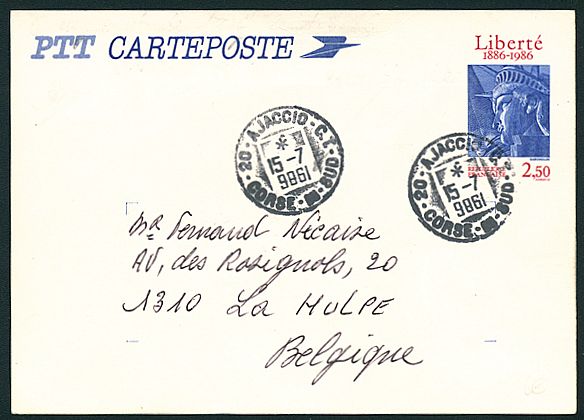 PTT CARTEPOSTE
Liberté
1886-1986
RÉPUBLIQUE
FRANÇAISE
2,50
20 - AJACCIO - C.T.
*
15-7
1986
CORSE - SUD
20 - AJACCIO
*
15-7
1986
CORSE - SUD
Mr Fernand Nicaise
AV, des Rossignols, 20
1310 La HULPE
Belgique